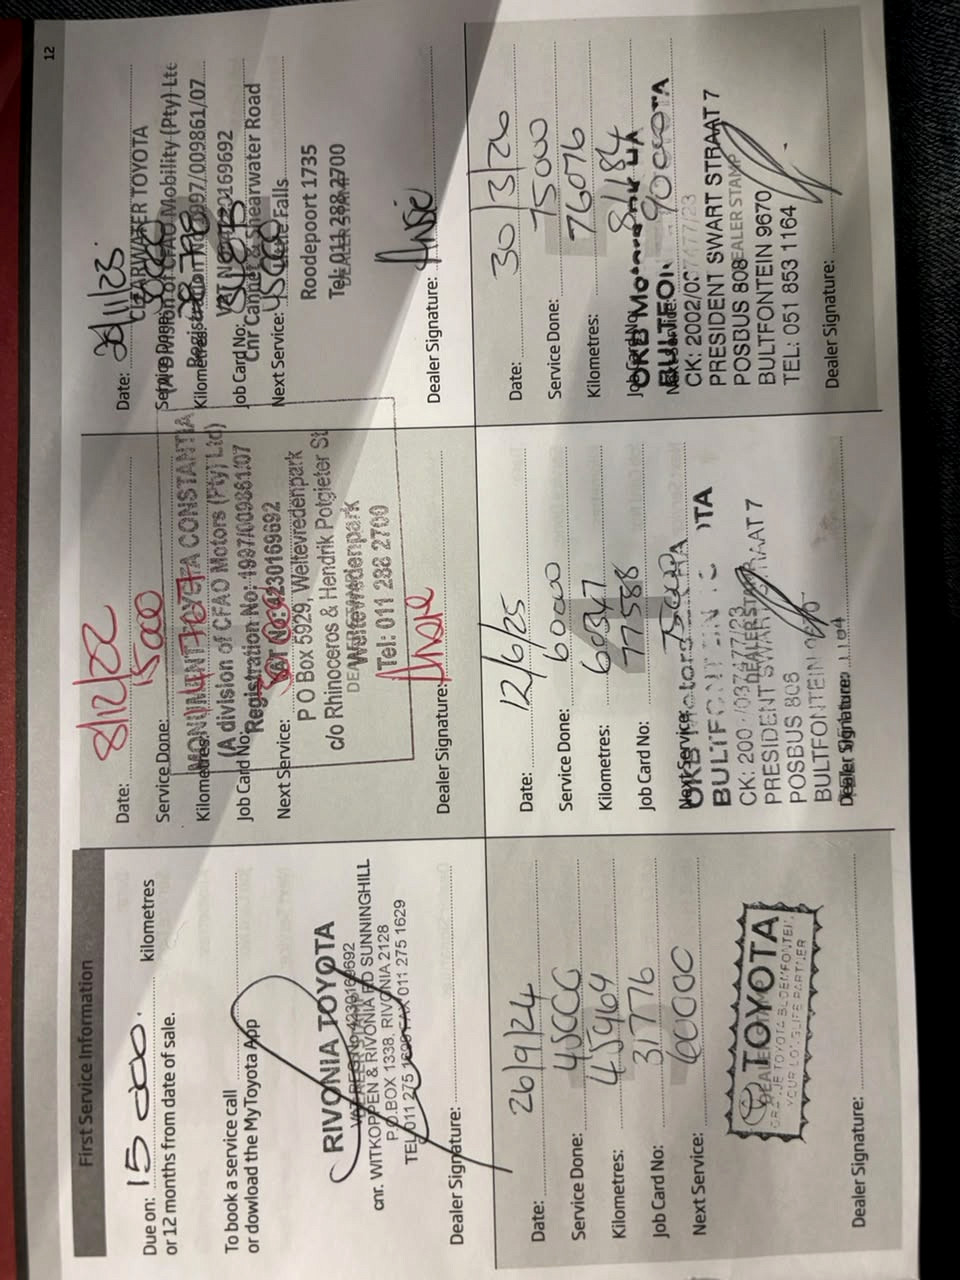 12
First Service Information
Due on: 15 000 kilometres
or 12 months from date of sale.
To book a service call
or dowload the MyToyota App
RIVONIA TOYOTA
VAT REG NO 4230169692
cnr. WITKOPPEN & RIVONIA RD SUNNINGHILL
P.O.BOX 1338, RIVONIA 2128
TEL 011 275 FAX 011 275 1629
Dealer Signature:
Date: 8/12/22
Service Done: 15000
Kilometres:
MONUMENT TOYOTA CONSTANTIA
(A division of CFAO Motors (Pty) Ltd)
Job Card No:
Registration No: 1997/009861/07
Next Service:
VAT No: 4230169692
P O Box 5929, Weltevredenpark
c/o Rhinoceros & Hendrik Potgieter St
Weltevredenpark
Tel: 011 288 2700
Dealer Signature:
Date: /11/23
CLEARWATER TOYOTA
Service Done:
(A Division of CFAO Mobility (Pty) Ltd
Kilometres:
Registration No 1997/009861/07
Job Card No:
VAT No 4230169692
Cnr & Shearwater Road
Next Service: 45000
Little Falls
Roodepoort 1735
Tel: 011 288 2700
DEALER STAMP
Dealer Signature:
Date: 26/9/24
Service Done: 45000
Kilometres: 459464
Job Card No: 31776
Next Service: 60000
TOYOTA
YOUR LONG LIFE PARTNER
Dealer Signature:
Date: 12/6/25
Service Done: 60000
Kilometres: 60347
Job Card No: 77588
Next Service: 75000
Motors
BULTFONTEIN
PRESIDENT SWART STRAAT 7
DEALER STAMP
POSBUS 808
BULTFONTEIN
Dealer Signature:
Date: 30/3/26
Service Done: 75000
Kilometres: 76076
Job Card No: 8184
Next Service: 90000
PRESIDENT SWART STRAAT 7
POSBUS 808
DEALER STAMP
BULTFONTEIN 9670
TEL: 051 853 1164
Dealer Signature: